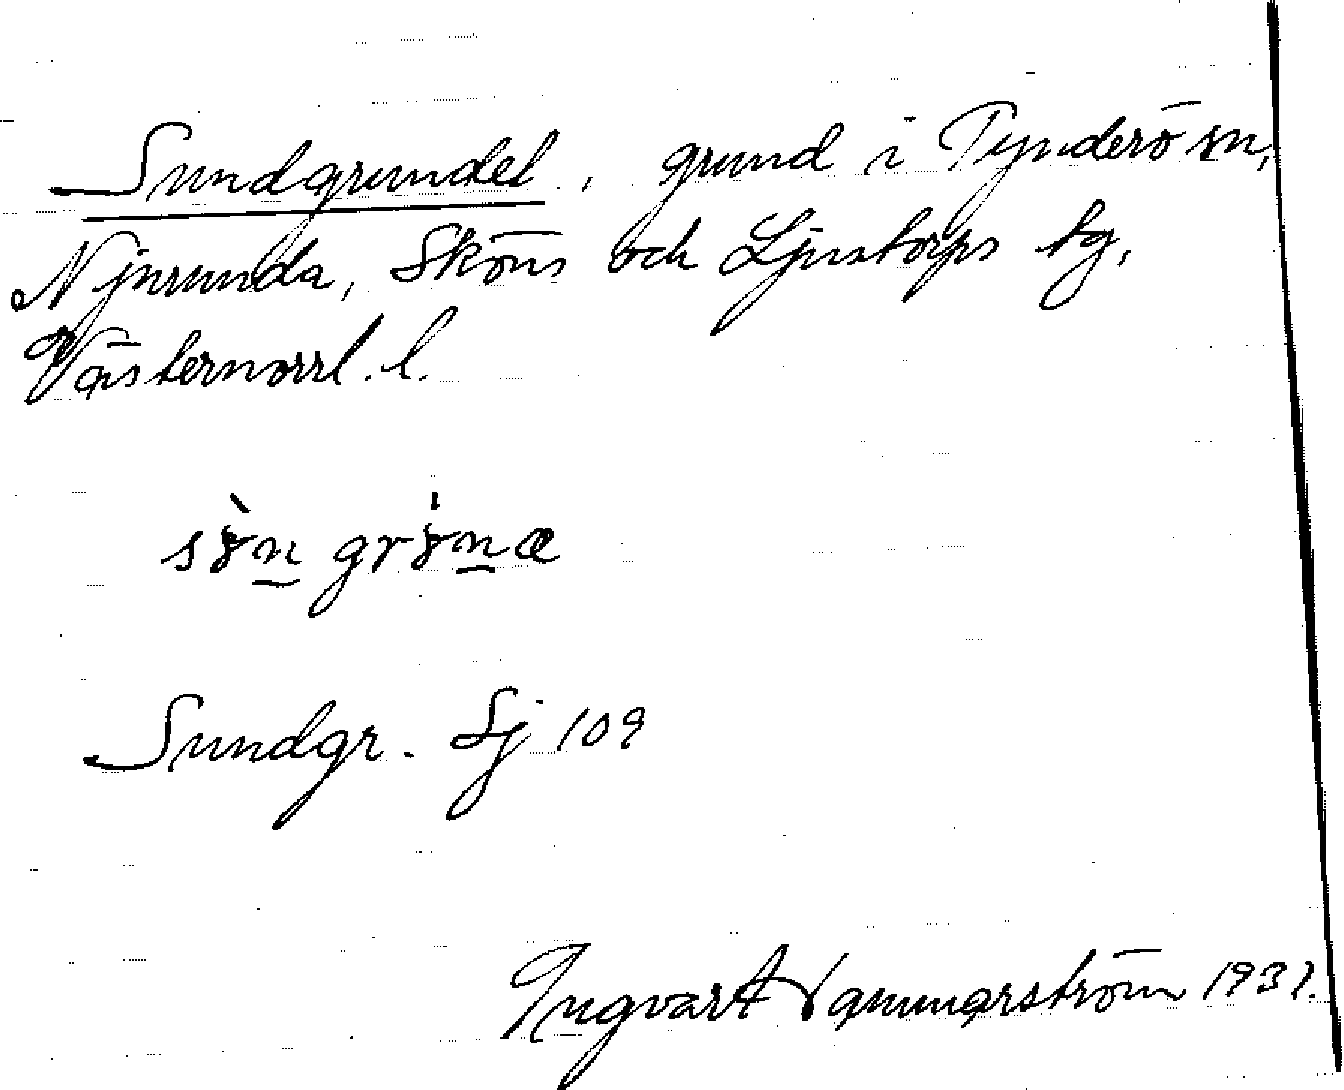 Sundgrundet, grund i Tynderö sn,
Njurunda, Sköns och Ljustorps tg,
Västernorrl. l.
Sundgr. Sj 109
Ingvart 1931.